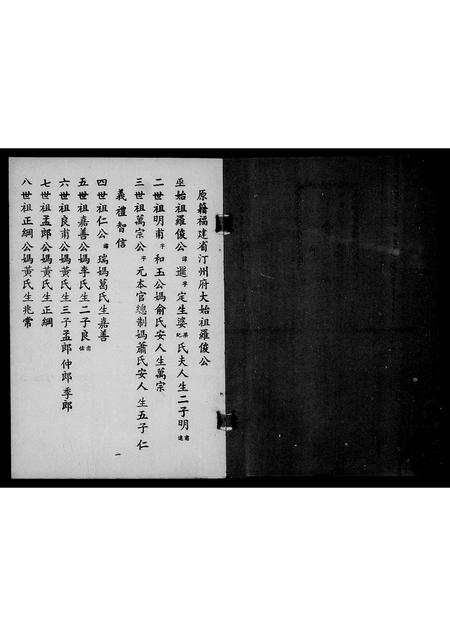 原籍福建省汀州府大始祖羅俊公
巫始祖羅俊公諱暹字定生婆梁紀氏夫人生二子明甫遠
二世祖明甫字和玉公媽俞氏安人生萬宗
三世祖萬宗公字元本官總制媽蕭氏安人生五子仁
義禮智信
四世祖仁公諱瑞媽葛氏生嘉善
五世祖嘉善公媽李氏生二子良甫佐
六世祖良甫公媽黃氏生三子孟郎仲郎季郎
七世祖孟郎公媽黃氏生正綱
八世祖正綱公媽黃氏生兆常
一